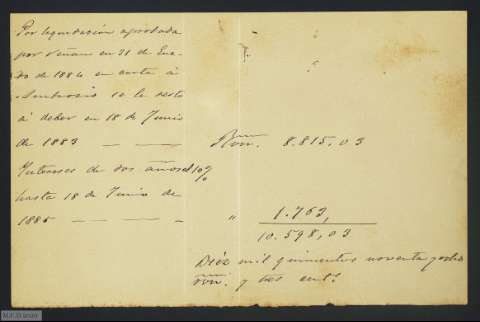 Por liquidación aprobada
por Viñau en 21 de Ene-
ro de 1884 en carta á
Ambrosio se le resta
á deber en 18 de Junio
de 1883 — — Rvn. 8.815,03
Intereses de dos años al 10%
hasta 18 de Junio de
1885 — — — " 1.763,
10.598,03
Diéz mil quinientos noventa y ocho
rvn. y tres cent.s